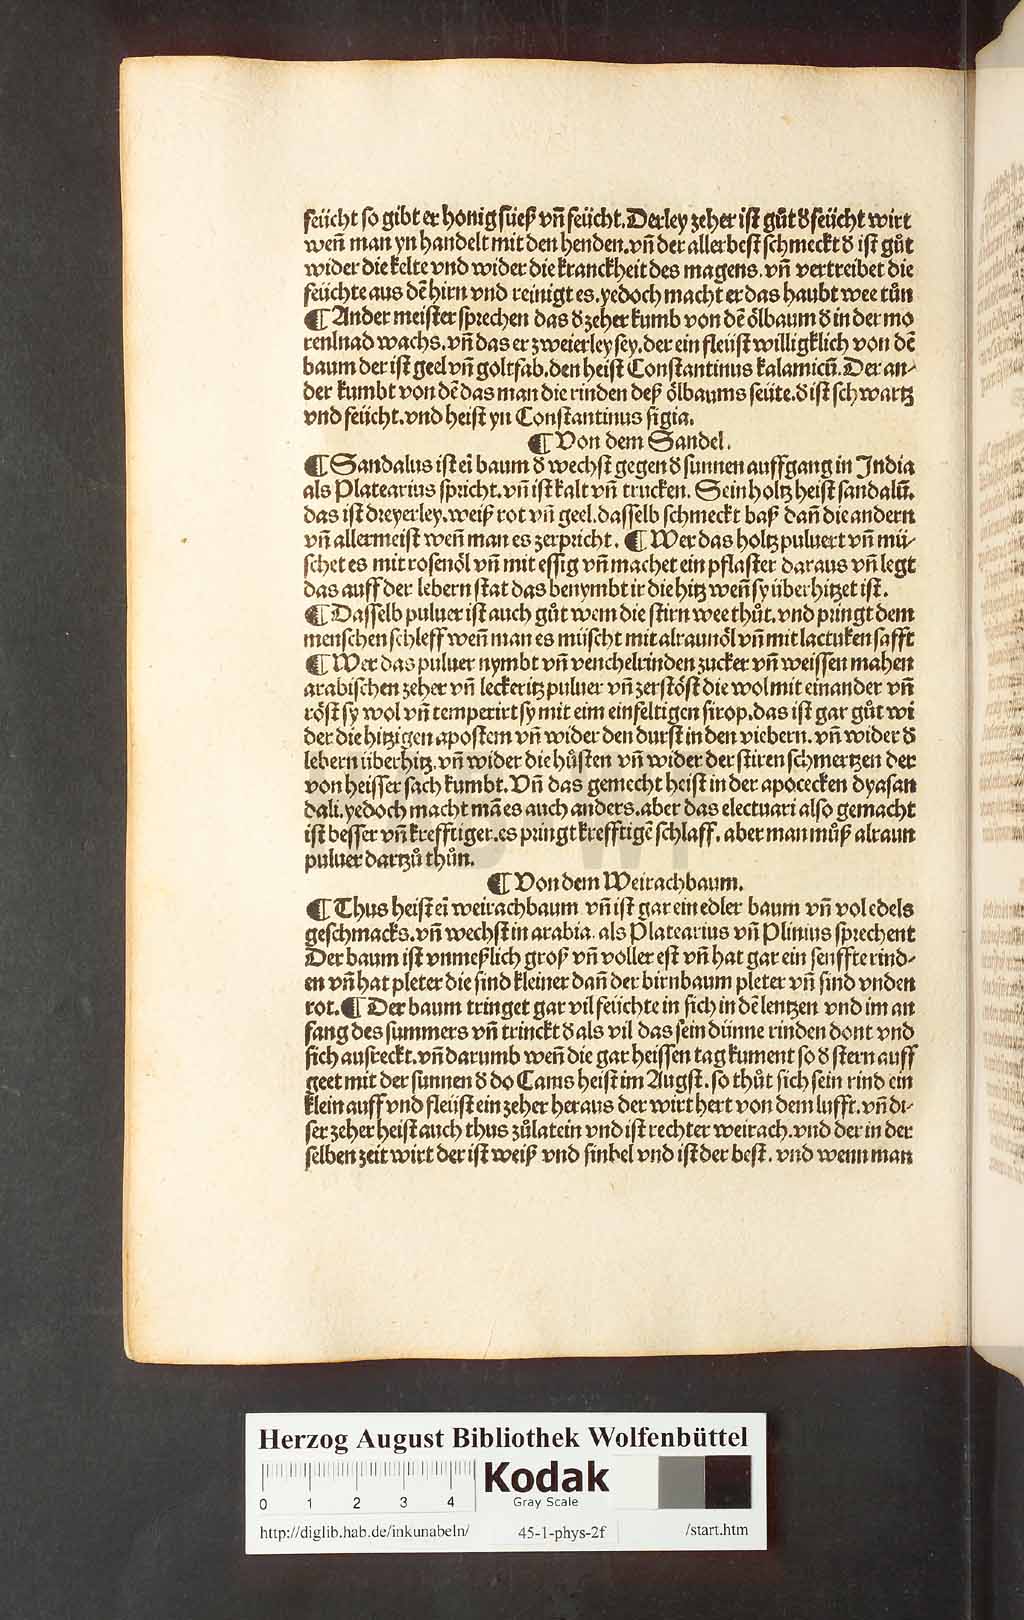 feücht so gibt er honigsüeß vñ feücht. Derley zeher ist gůt d feücht wirt
weñ man yn handelt mit den henden. vñ der aller best schmeckt d ist gůt
wider die kelte vnd wider die kranckheit des magens. vñ vertreibet die
feüchte aus dē hirn vnd reinigt es. yedoch macht er das haubt wee tůn
¶ Ander meister sprechen das d zeher kumb von dē ölbaum d in der mo
renlnad wachs. vñ das er zweierley sey. der ein fleüst willigklich von dē
baum der ist geel vñ goltfab. den heist Constantinus kalamicū. Der an⸗
der kumbt von dē das man die rinden deß ölbaums seüte. d ist schwartz
vnd feücht. vnd heist yn Constantinus sigia.
¶ Von dem Sandel.
¶ Sandalus ist eī baum d wechst gegen d sunnen auffgang in India
als Platearius spricht. vñ ist kalt vñ trucken. Sein holtz heist sandalū.
das ist dreyerley. weiß rot vñ geel. dasselb schmeckt baß dañ die andern
vñ allermeist weñ man es zerpricht. ¶ Wer das holtz puluert vñ mü⸗
schet es mit rosenöl vñ mit essig vñ machet ein pflaster daraus vñ legt
das auff der lebern stat das benymbt ir die hitz weñ sy überhitzet ist.
¶ Dasselb puluer ist auch gůt wem die stirn wee thůt. vnd pringt dem
menschen schleff weñ man es müscht mit alraunöl vñ mit lactuken safft
¶ Wer das puluer nymbt vñ venchelrinden zucker vñ weissen mahen
arabischen zeher vñ leckeritz puluer vñ zerstöst die wol mit einander vñ
röst sy wol vñ temperirt sy mit eim einfeltigen sirop. das ist gar gůt wi
der die hitzigen apostem vñ wider den durst in den viebern. vñ wider d
lebern überhitz. vñ wider die hůsten vñ wider der stiren schmertzen der
von heisser sach kumbt. Vñ das gemecht heist in der apocecken dyasan
dali. yedoch macht mā es auch anders. aber das electuari also gemacht
ist besser vñ krefftiger. es pringt krefftigē schlaff. aber man můß alraun
puluer dartzů thůn.
¶ Von dem Weirachbaum.
¶ Thus heist eī weirachbaum vñ ist gar ein edler baum vñ vol edels
geschmacks. vñ wechst in arabia. als Platearius vñ Plinius sprechent
Der baum ist vnmeßlich groß vñ voller est vñ hat gar ein senffte rind⸗
en vñ hat pleter die sind kleiner dañ der birnbaum pleter vñ sind vnden
rot. ¶ Der baum tringet gar vil feüchte in sich in dē lentzen vnd im an
fang des summers vñ trinckt d als vil das sein dünne rinden dont vnd
sich austreckt. vñ darumb weñ die gar heissen tag kument so d stern auff
geet mit der sunnen d do Canis heist im Augst. so thůt sich sein rind ein
klein auff vnd fleüst ein zeher heraus der wirt hert von dem lufft. vñ di⸗
ser zeher heist auch thus zůlatein vnd ist rechter weirach. vnd der in der
selben zeit wirt der ist weiß vnd sinbel vnd ist der best. vnd wenn man
HAB WF
Herzog August Bibliothek Wolfenbüttel
0 1 2 3 4
Kodak
Gray Scale
http://diglib.hab.de/inkunabeln/ 45-1-phys-2f /start.htm